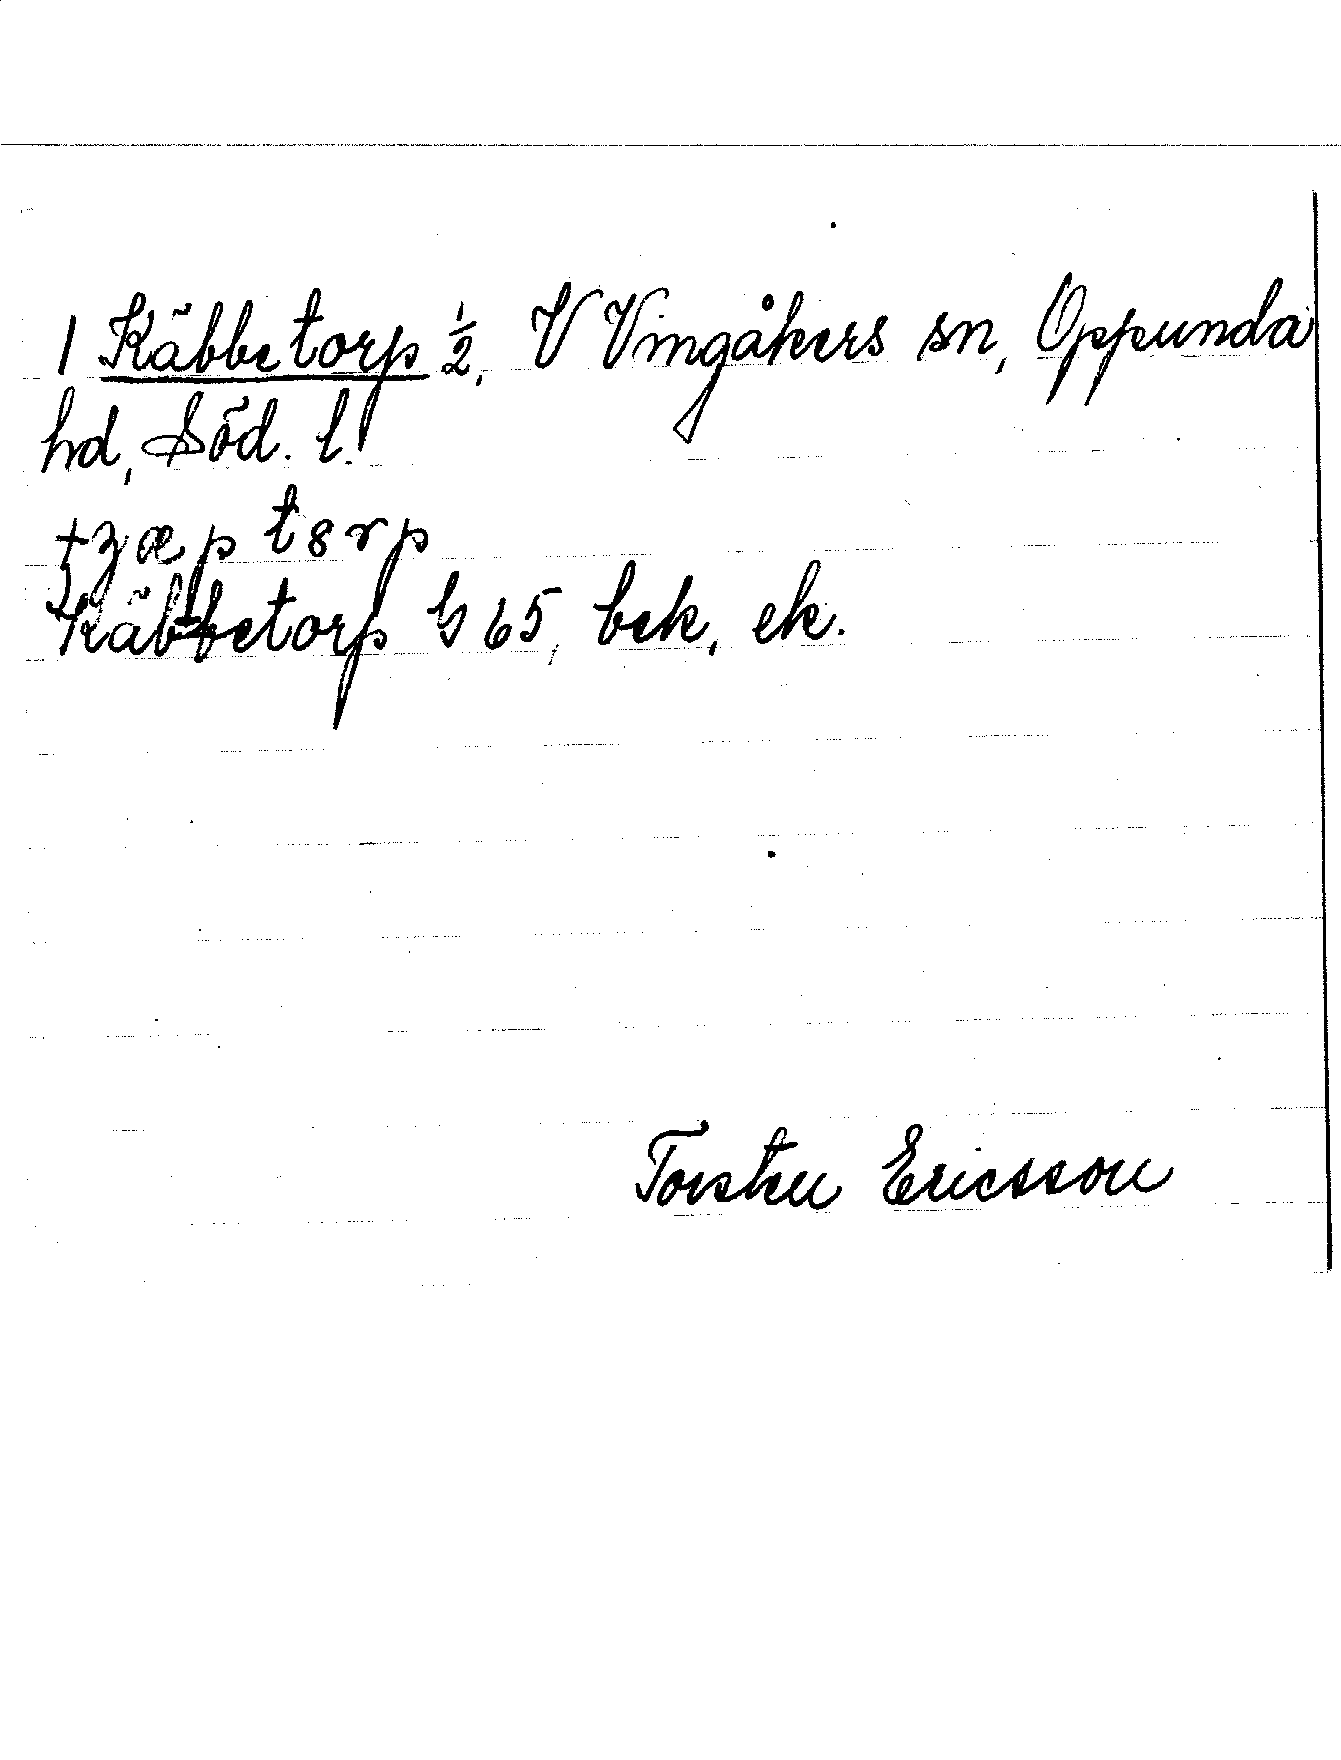 1 Käbbetorp ½, V Vingåkers sn, Oppunda
hd, Söd. l.
tʒæptɞrp
Käbbetorp G 65, bek, ek.
Torsten Ericsson